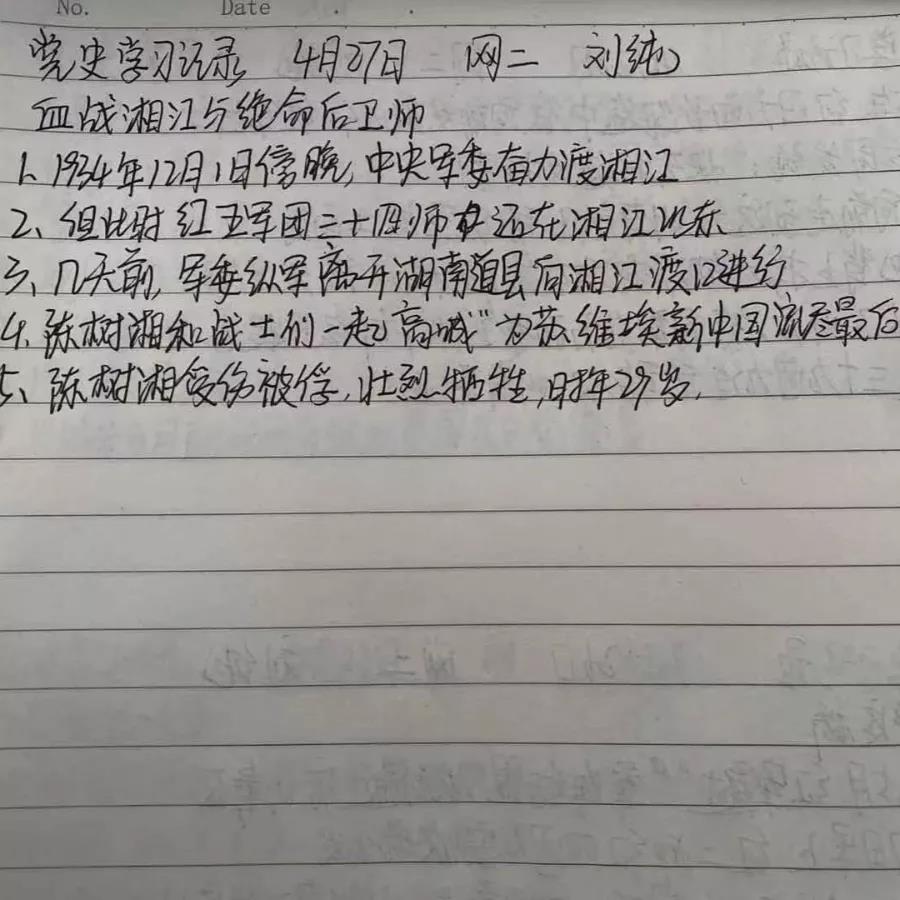 No. Date . .
党史学习记录 4月27日 网二 刘纯
血战湘江与绝命后卫师
1、1934年12月1日傍晚,中央军委奋力渡湘江
2、但此时红五军团三十四师还在湘江以东
3、几天前,军委纵军离开湖南道县向湘江渡口进行
4、陈树湘和战士们一起高喊"为苏维埃新中国流尽最后
5、陈树湘受伤被俘,壮烈牺牲,时年29岁.